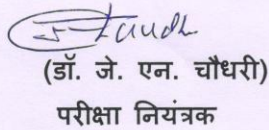 (डॉ. जे. एन. चौधरी)
परीक्षा नियंत्रक